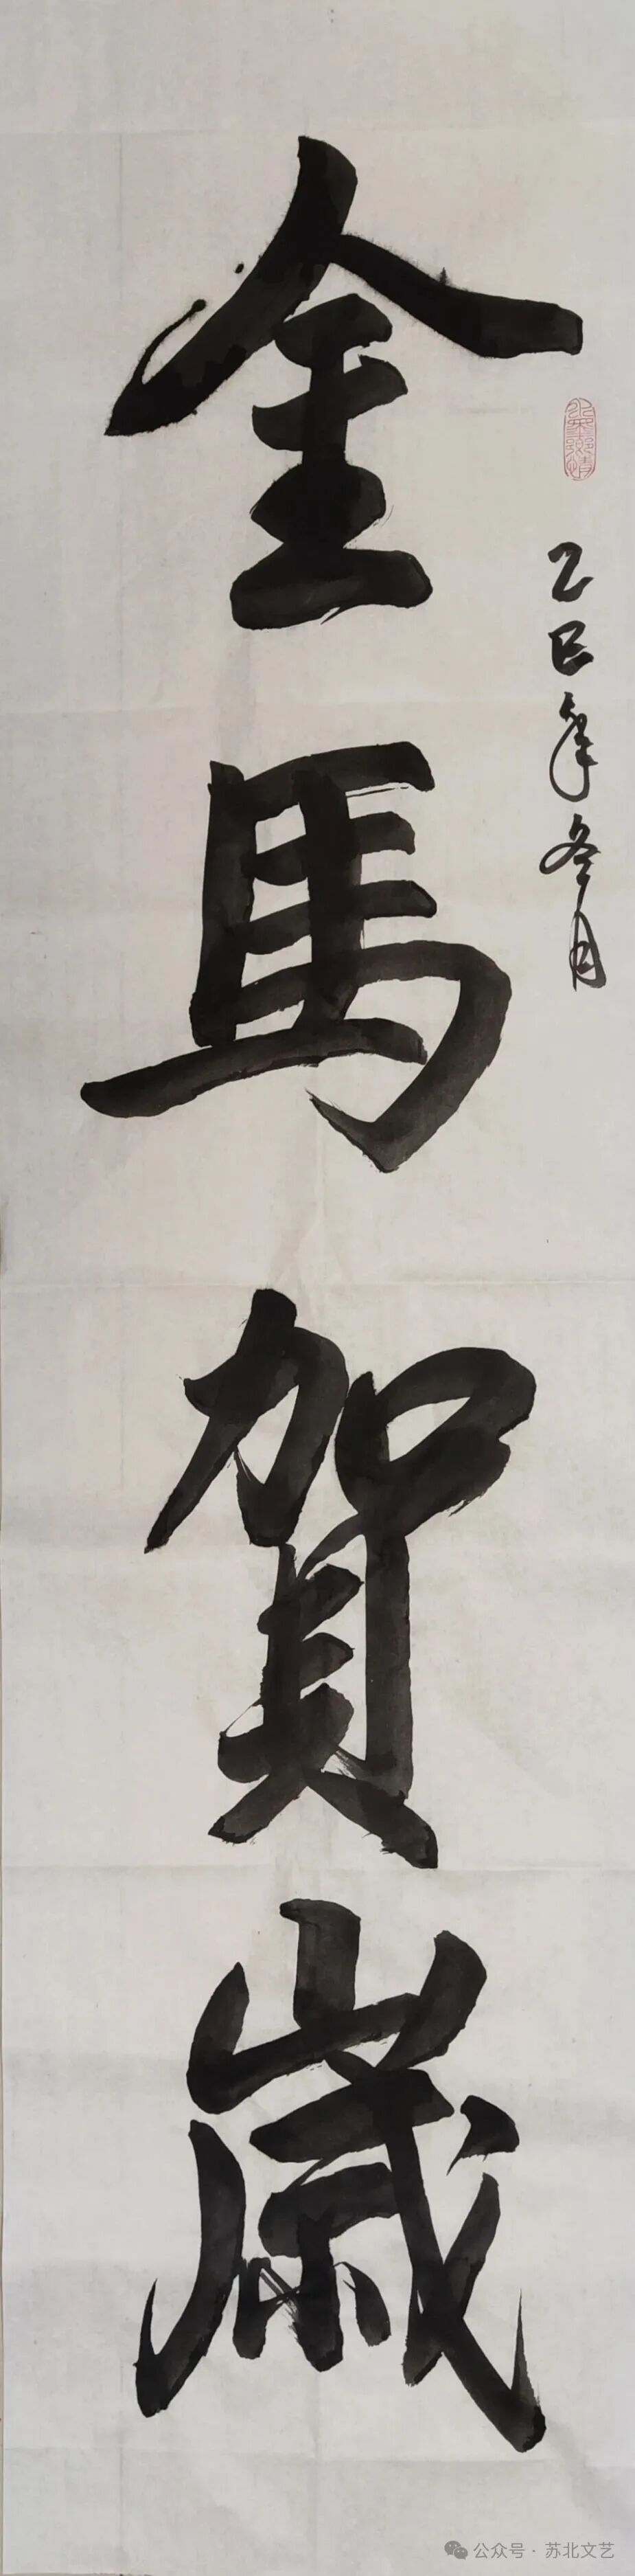 乙巳年冬月
金馬賀歲
公众号·苏北文艺